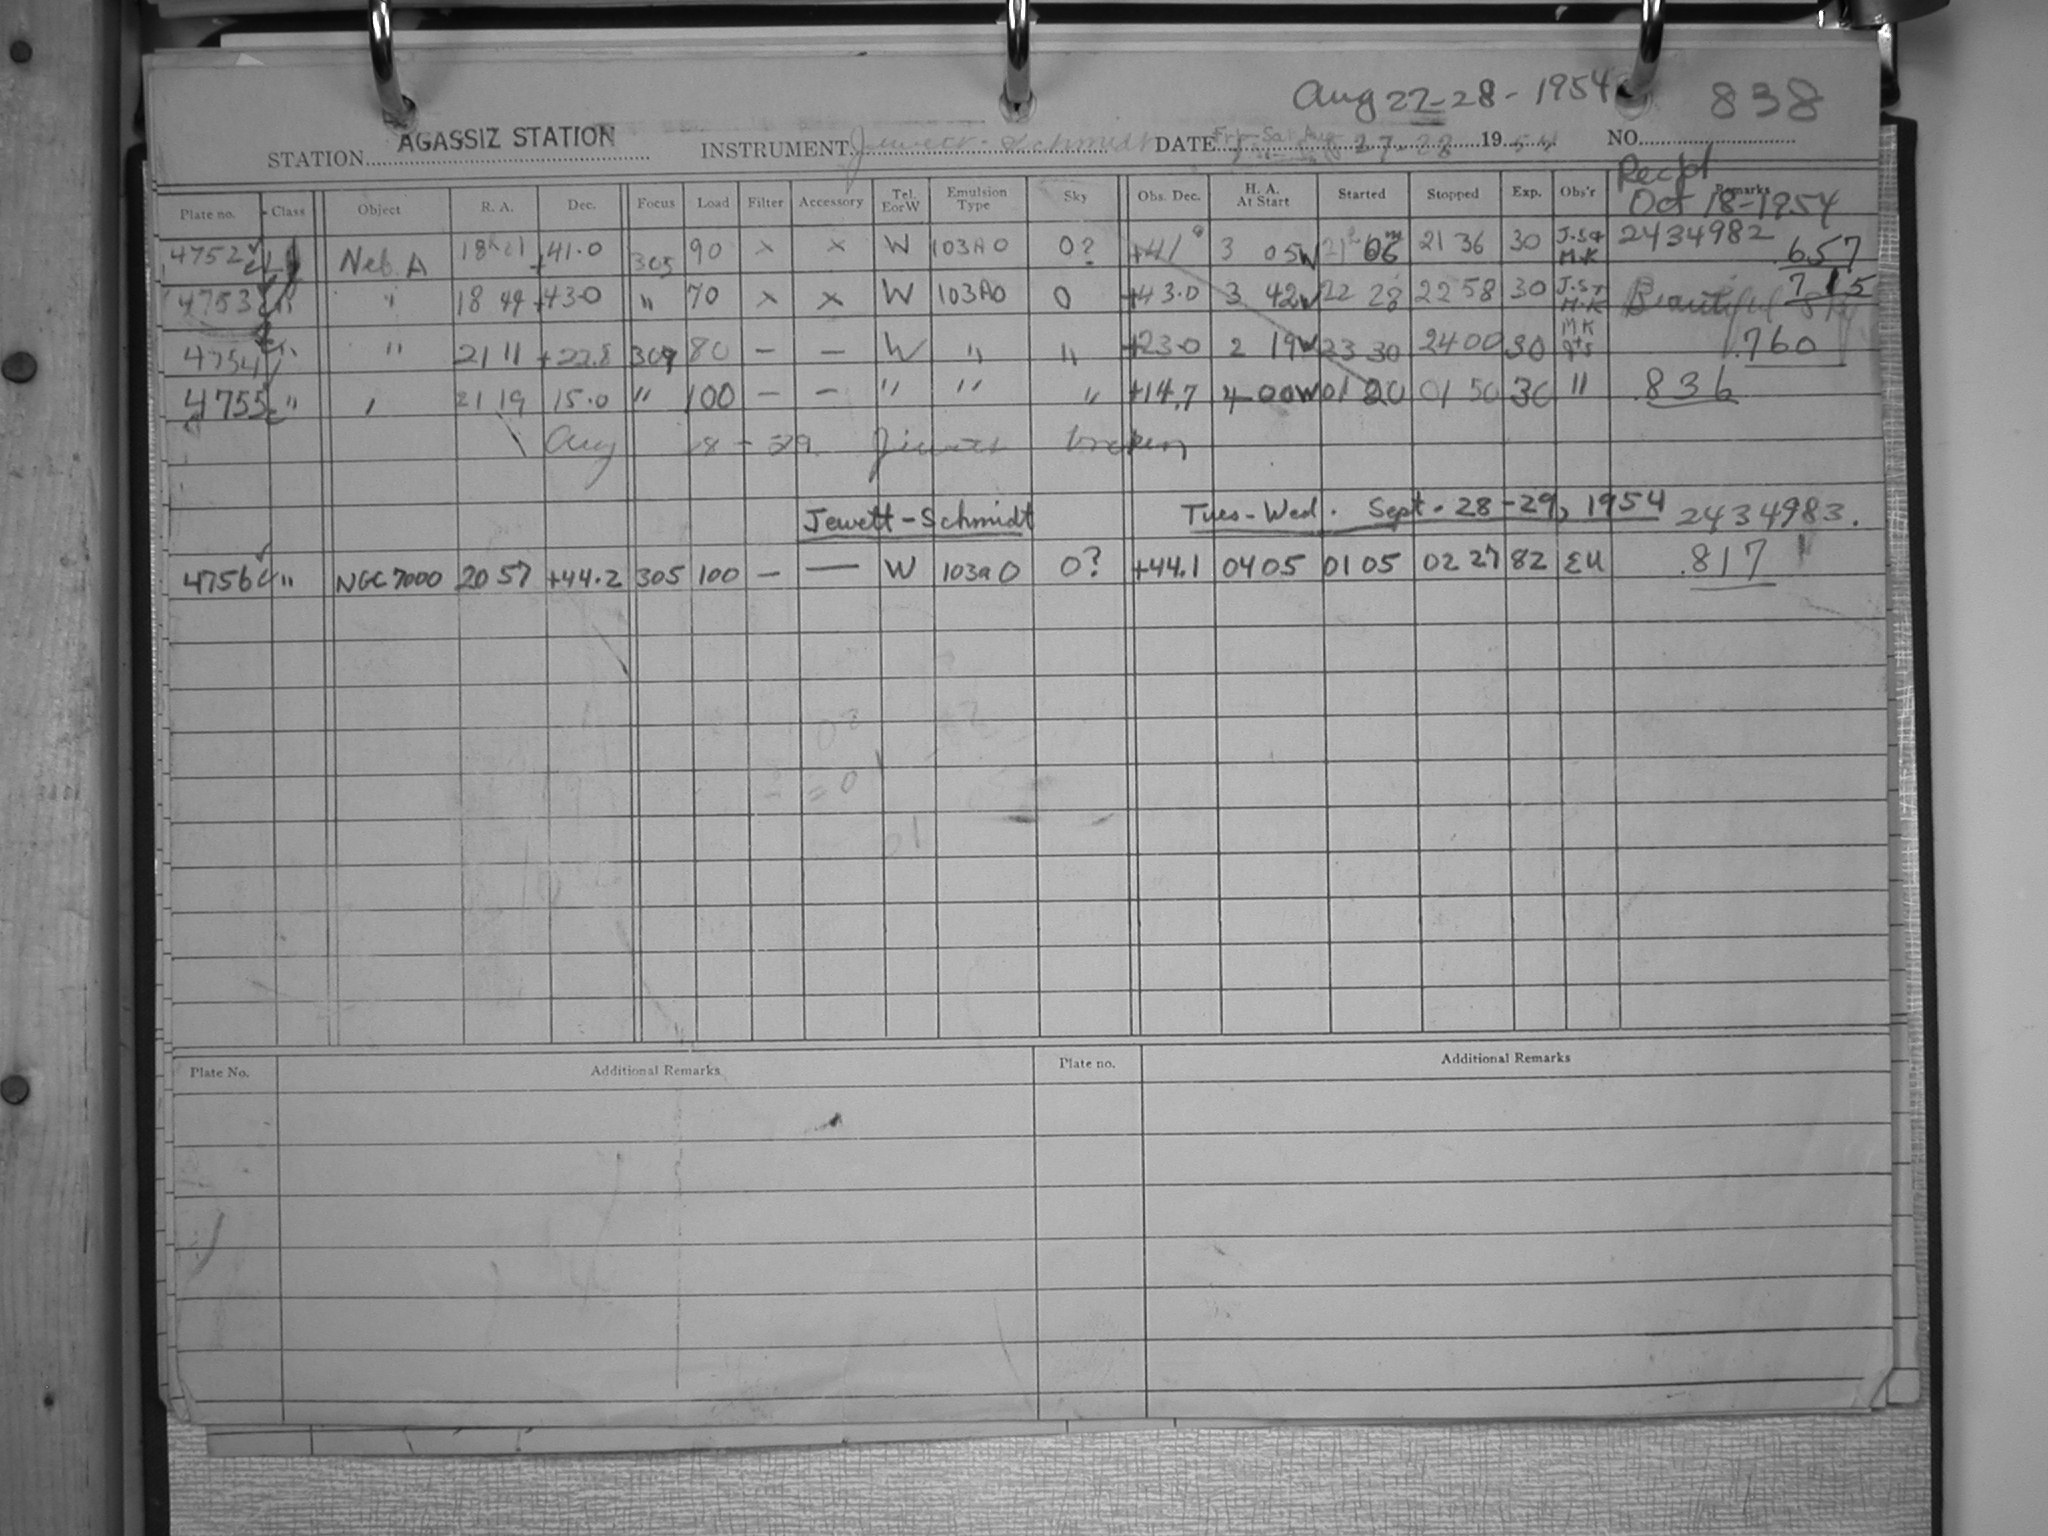 Aug 27-28 - 1954 838
STATION AGASSIZ STATION INSTRUMENT Jewett-Schmidt DATE Fri-Sat Aug 27-28 1954 NO.
Recpt
Plate no. Class Object R. A. Dec. Focus Load Filter Accessory Tel. E or W Emulsion Type Sky Obs. Dec. H. A. At Start Started Stopped Exp. Obs'r Remarks
Oct 18-1954
4752 Neb. A 18h 01 +41.0 305 90 x x W 103A0 0? +41° 3 05W 21h 06m 21 36 30 J.S & M.K 2434982 .657
4753 " 18 49 +43.0 " 70 x x W 103A0 0 +43.0 3 42W 22 28 22 58 30 J.S + M.K Beautiful Sky .715
4754 " " 21 11 +22.8 309 80 - - W " " +23.0 2 19W 23 30 24 00 30 MK .760
4755 " 21 19 15.0 " 100 - - " " " +14.7 4 00W 01 20 01 50 30 " .836
Aug broken
Jewett-Schmidt Tues-Wed. Sept. 28-29, 1954 2434983.
4756 " NGC 7000 20 57 +44.2 305 100 - — W 103a0 0? +44.1 04 05 01 05 02 27 82 EU .817
Plate No. Additional Remarks Plate no. Additional Remarks